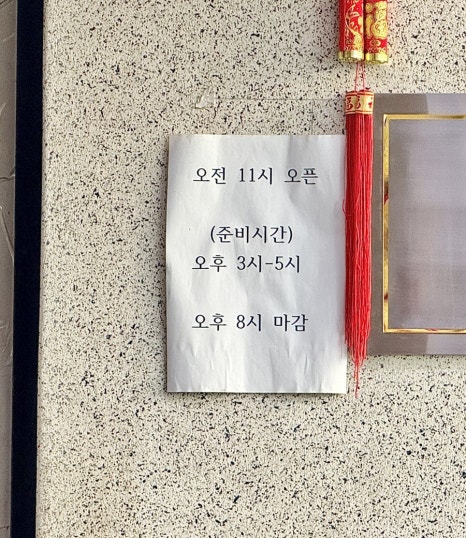 오전 11시 오픈
(준비시간)
오후 3시-5시
오후 8시 마감